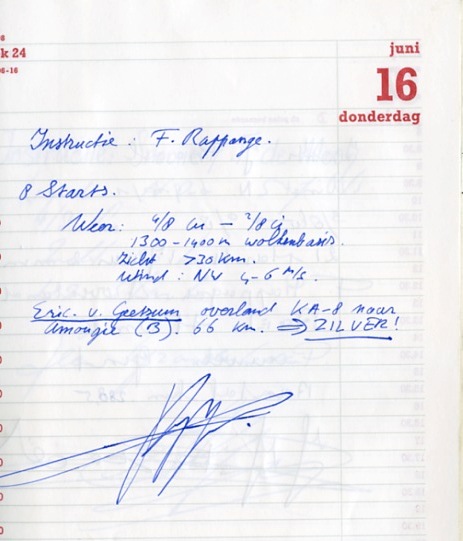 k 24
juni
16
donderdag
Instructie: F. Rappange.
8 Starts.
Weer: 4/8 cu – 2/8 ci
1300-1400m wolkenbasis.
zicht >30 km.
wind: NW 4-6 m/s.
Eric. v. overland KA-8 naar
Amougie (B). 66 km. ⇒ ZILVER!